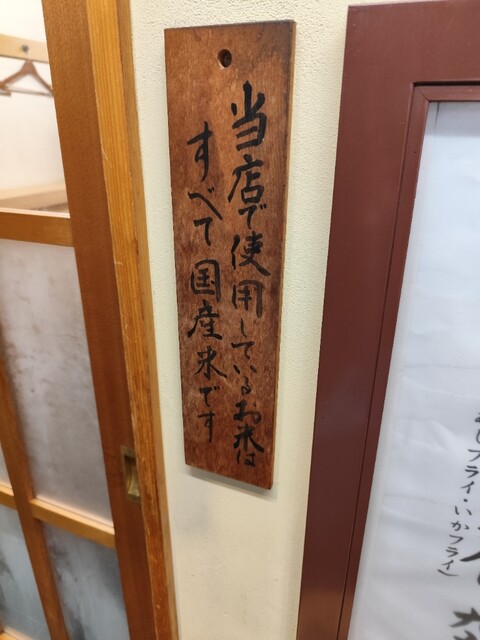 当店で使用しているお米は
すべて国産米です
あじフライ・いかフライ)